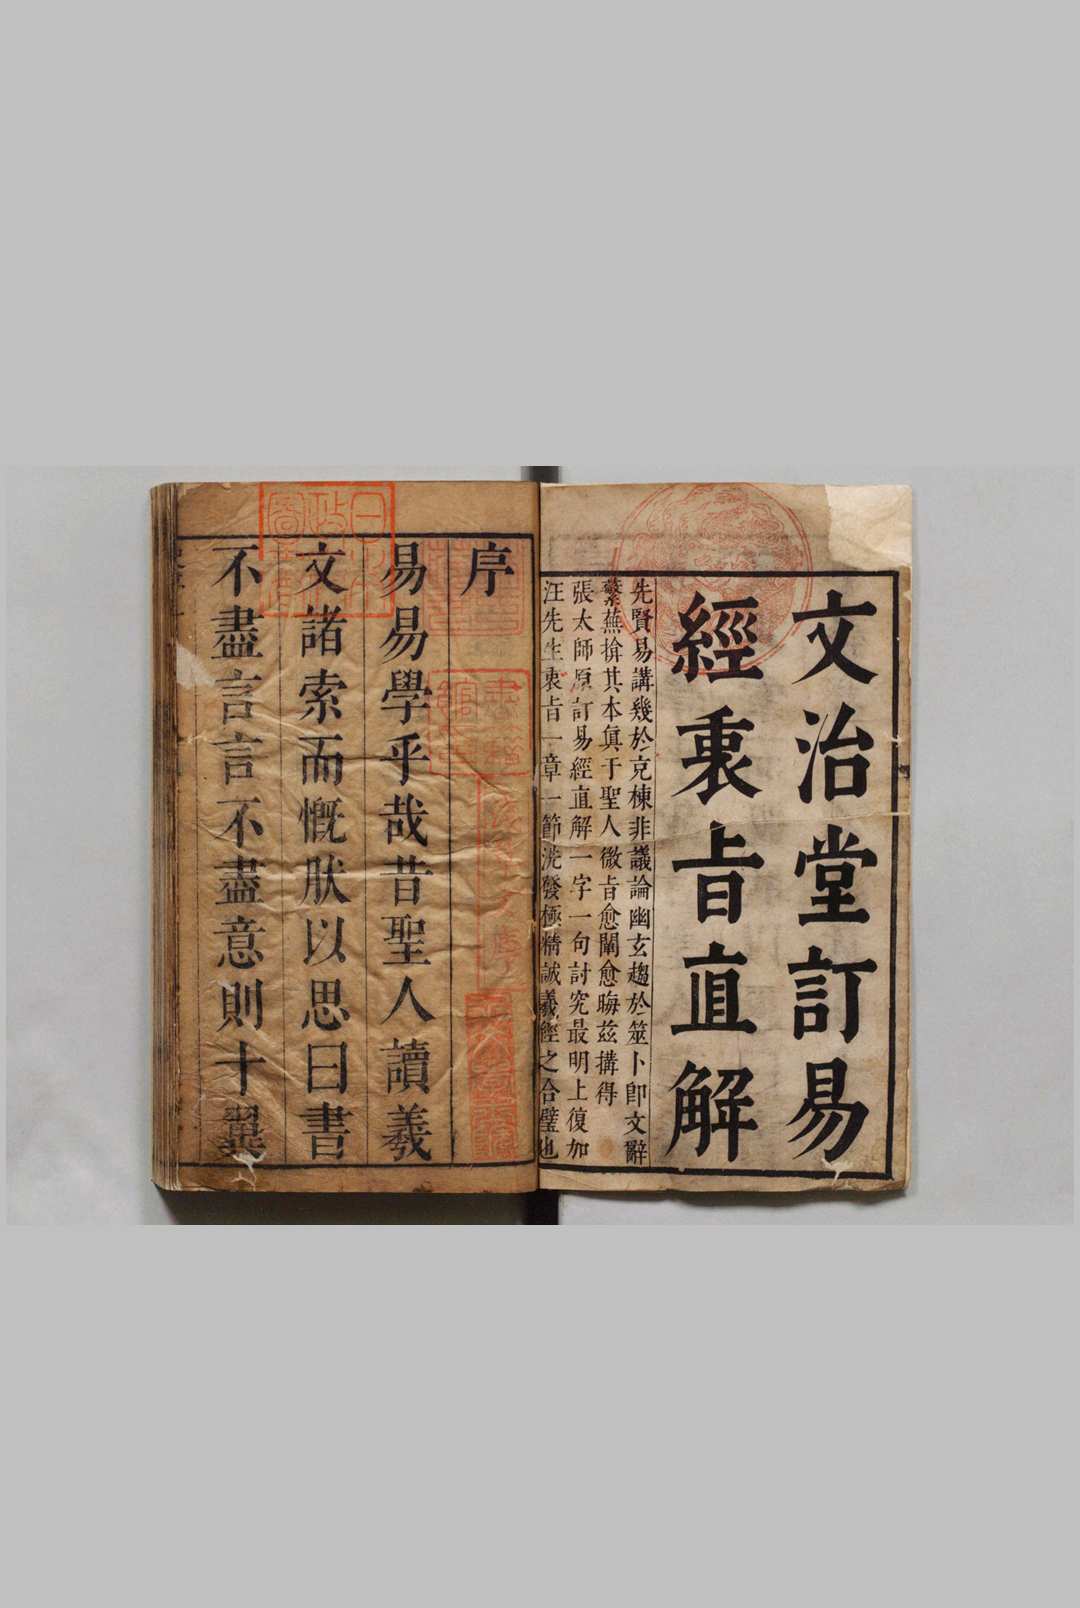 文治堂訂易
經衷旨直解
先賢易講幾於充棟非議論幽玄趨於筮卜卽文辭
繁蕪揜其本眞于聖人微旨愈闡愈晦茲搆得
張太師原訂易經直解一字一句討究最明上復加
汪先生衷旨一章一節洗發極精誠羲經之合璧也
序
易易學乎哉昔聖人讀羲
文諸索而慨肰以思曰書
不盡言言不盡意則十翼